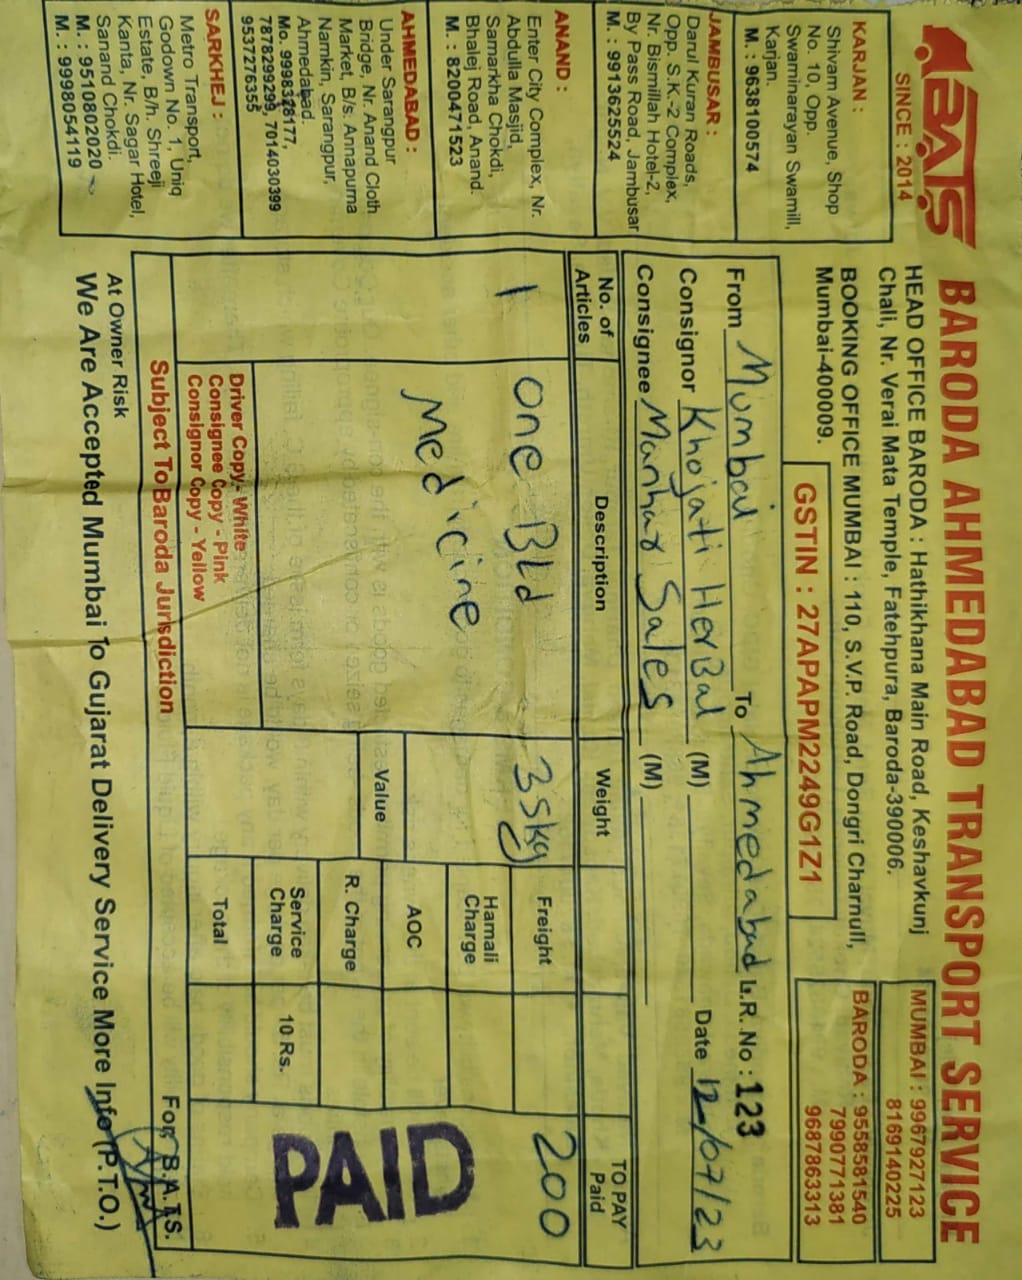 BATS
SINCE : 2014
BARODA AHMEDABAD TRANSPORT SERVICE
HEAD OFFICE BARODA : Hathikhana Main Road, Keshavkunj
Chali, Nr. Verai Mata Temple, Fatehpura, Baroda-390006.
BOOKING OFFICE MUMBAI : 110, S.V.P. Road, Dongri Charnull,
Mumbai-400009.
MUMBAI : 9967927123
8169140225
BARODA : 9558581540
7990771381
9687863313
GSTIN : 27APAPM2249G1Z1
KARJAN :
Shivam Avenue, Shop
No. 10, Opp.
Swaminarayan Swamill,
Karjan.
M. : 9638100574
JAMBUSAR :
Darul Kuran Roads,
Opp. S.K.-2 Complex,
Nr. Bismillah Hotel-2,
By Pass Road, Jambusar
M. : 9913625524
ANAND :
Enter City Complex, Nr.
Abdulla Masjid,
Samarkha Chokdi,
Bhalej Road, Anand.
M. : 8200471523
AHMEDABAD :
Under Sarangpur
Bridge, Nr. Anand Cloth
Market, B/s. Annapurna
Namkin, Sarangpur,
Ahmedabad.
Mo. 9998328177,
7878299299, 7014030399
9537276355
SARKHEJ :
Metro Transport,
Godown No. 1, Uniq
Estate, B/h. Shreeji
Kanta, Nr. Sagar Hotel,
Sanand Chokdi.
M. : 9510802020
M. : 9998054119
From Mumbai To Ahmedabad L.R. No : 123
Consignor Khojati Herbal (M) Date 12/07/23
Consignee Manhar Sales (M)
No. of Articles Description Weight TO PAY Paid
1 One Bld 35kg Freight 200
Medicine
Hamali Charge
AOC
Value
R. Charge
Service Charge 10 Rs.
Total
PAID
Driver Copy- White
Consignee Copy - Pink
Consignor Copy - Yellow
Subject To Baroda Jurisdiction
For, B.A.T.S.
At Owner Risk
We Are Accepted Mumbai To Gujarat Delivery Service More Info (P.T.O.)